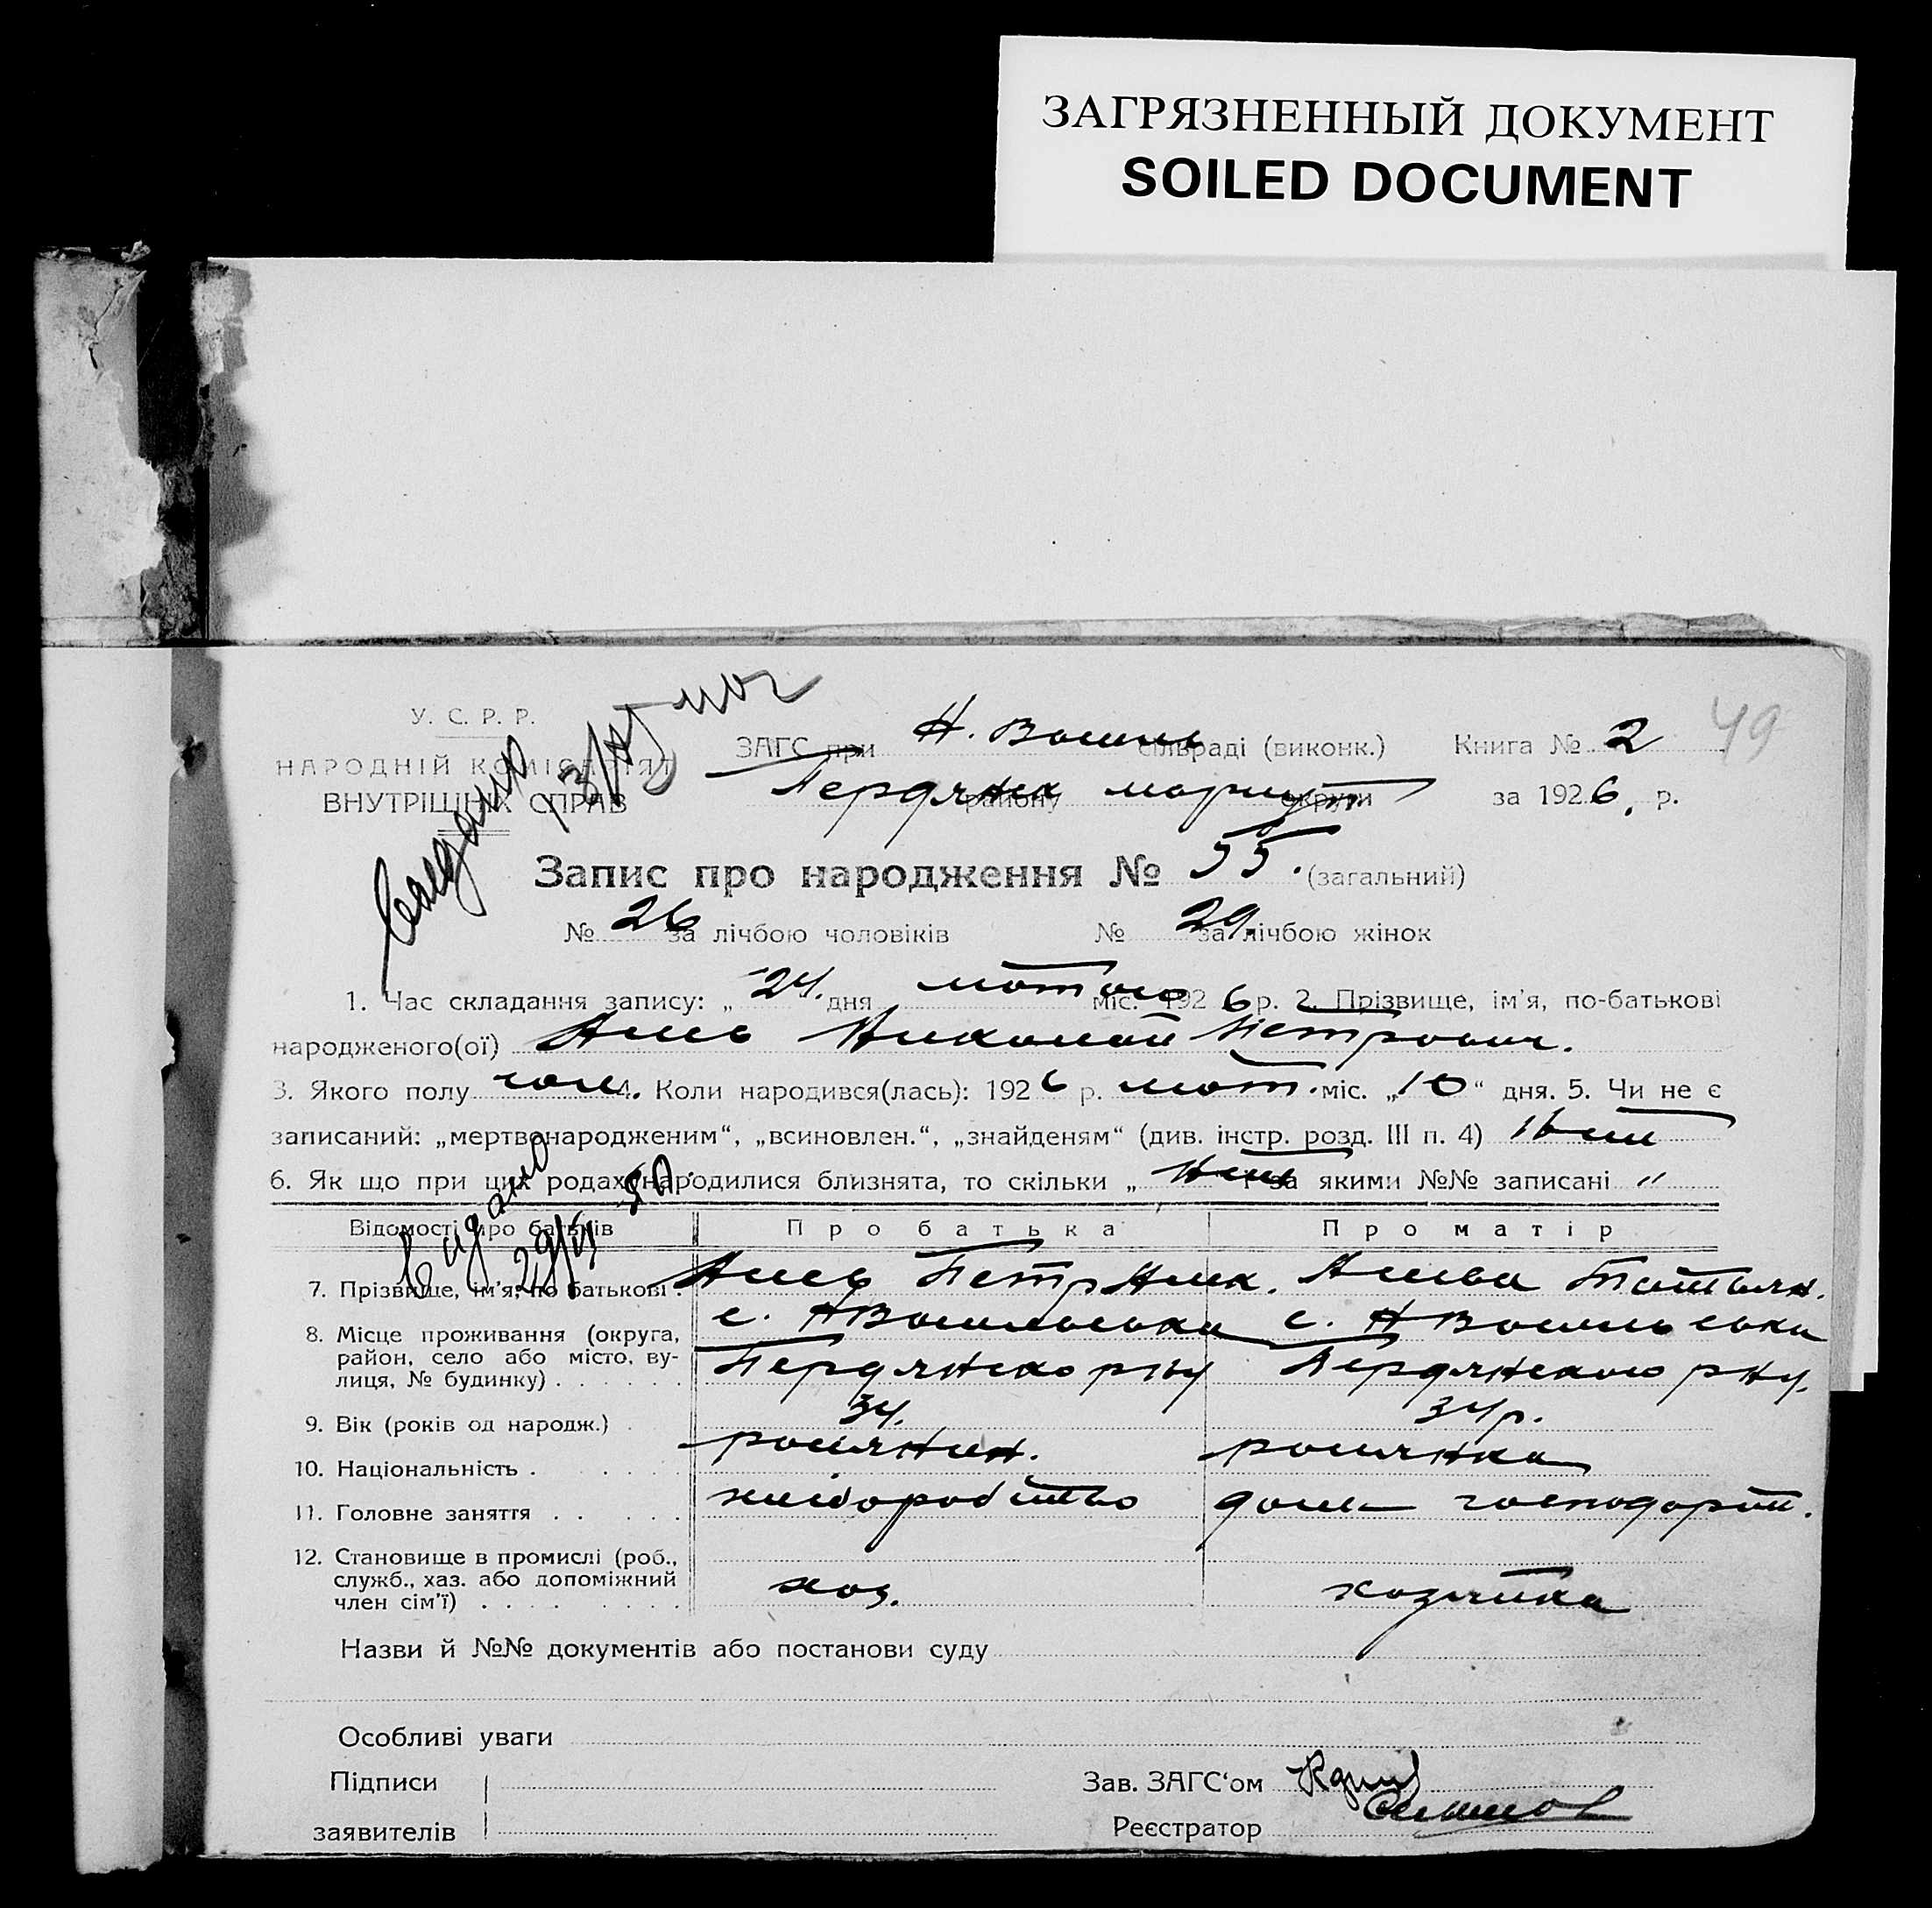 ЗАГРЯЗНЕННЫЙ ДОКУМЕНТ
SOILED DOCUMENT
У. С. Р. Р.
НАРОДНІЙ КОМІСАРІЯТ
ВНУТРІШНІХ СПРАВ
49
ЗАГС при Н. Васил сільраді (виконк.) Книга № 2
Бердянск району округи за 1926. р.
Запис про народження № 55. (загальний)
№ 26 за лічбою чоловіків № 29. за лічбою жінок
1. Час складання запису: „ 24. дня лютого міс. 1926 р. 2. Прізвище, ім'я, по-батькові
народженого(ої) Николай Петрович.
3. Якого полу чол. 4. Коли народився(лась): 1926 р. лют. міс. „10“ дня. 5. Чи не є
записаний: „мертвонародженим“, „всиновлен.“, „знайденям“ (див. інстр. розд. III п. 4)
6. Як що при цих родах народилися близнята, то скільки „ і за якими №№ записані "
Відомості про батьків Про батька Про матір
7. Прізвище, ім'я, по батькові. Петр Татьян.
8. Місце проживання (округа, район, село або місто, вулиця, № будинку) . . . . . .
с. НВасильовка с. НВасильовка
Бердянско рну Бердянского рну.
9. Вік (років од народж.) . 34. 34 р.
10. Національність . . . . . росіянин. росіянка
11. Головне заняття . . . . . хліборобство дом господарст.
12. Становище в промислі (роб., служб., хаз. або допоміжний член сім'ї) . . . . . хоз. хозяйка
Назви й №№ документів або постанови суду
Особливі уваги
Підписи Зав. ЗАГС'ом
заявителів Реєстратор
Видано